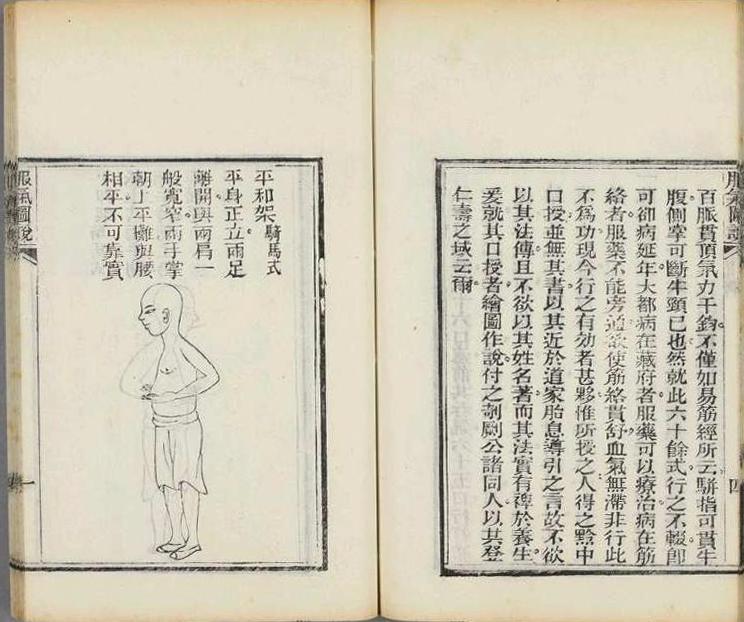 服氣圖說
百脈貫頂氣力千鈞不僅如易筋經所云駢指可貫牛
腹側掌可斷牛頸已也然就此六十餘式行之不輟卽
可卻病延年大都病在藏府者服藥可以療治病在筋
絡者服藥不能旁通欲使筋絡貫舒血氣無滯非行此
不為功現今行之有効者甚夥惟所授之人得之黔中
口授並無其書以其近於道家胎息導引之言故不欲
以其法傳且不欲以其姓名著而其法實有裨於養生
爰就其口授者繪圖作說付之剞劂公諸同人以其登
仁壽之域云爾
四
平和架騎馬式
平身正立兩足
離開與兩肩一
般寬窄兩手掌
朝上平攤與腰
相平不可靠實
服氣圖說
一